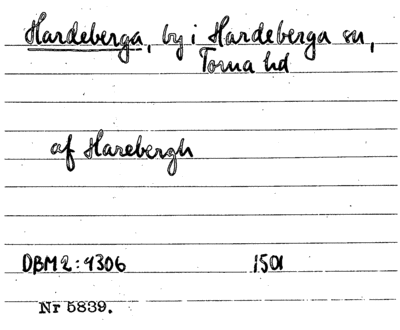 Hardeberga, by i Hardeberga sn,
Torna hd
af Harebergh
DBM 2:4306 1501
Nr 5839.